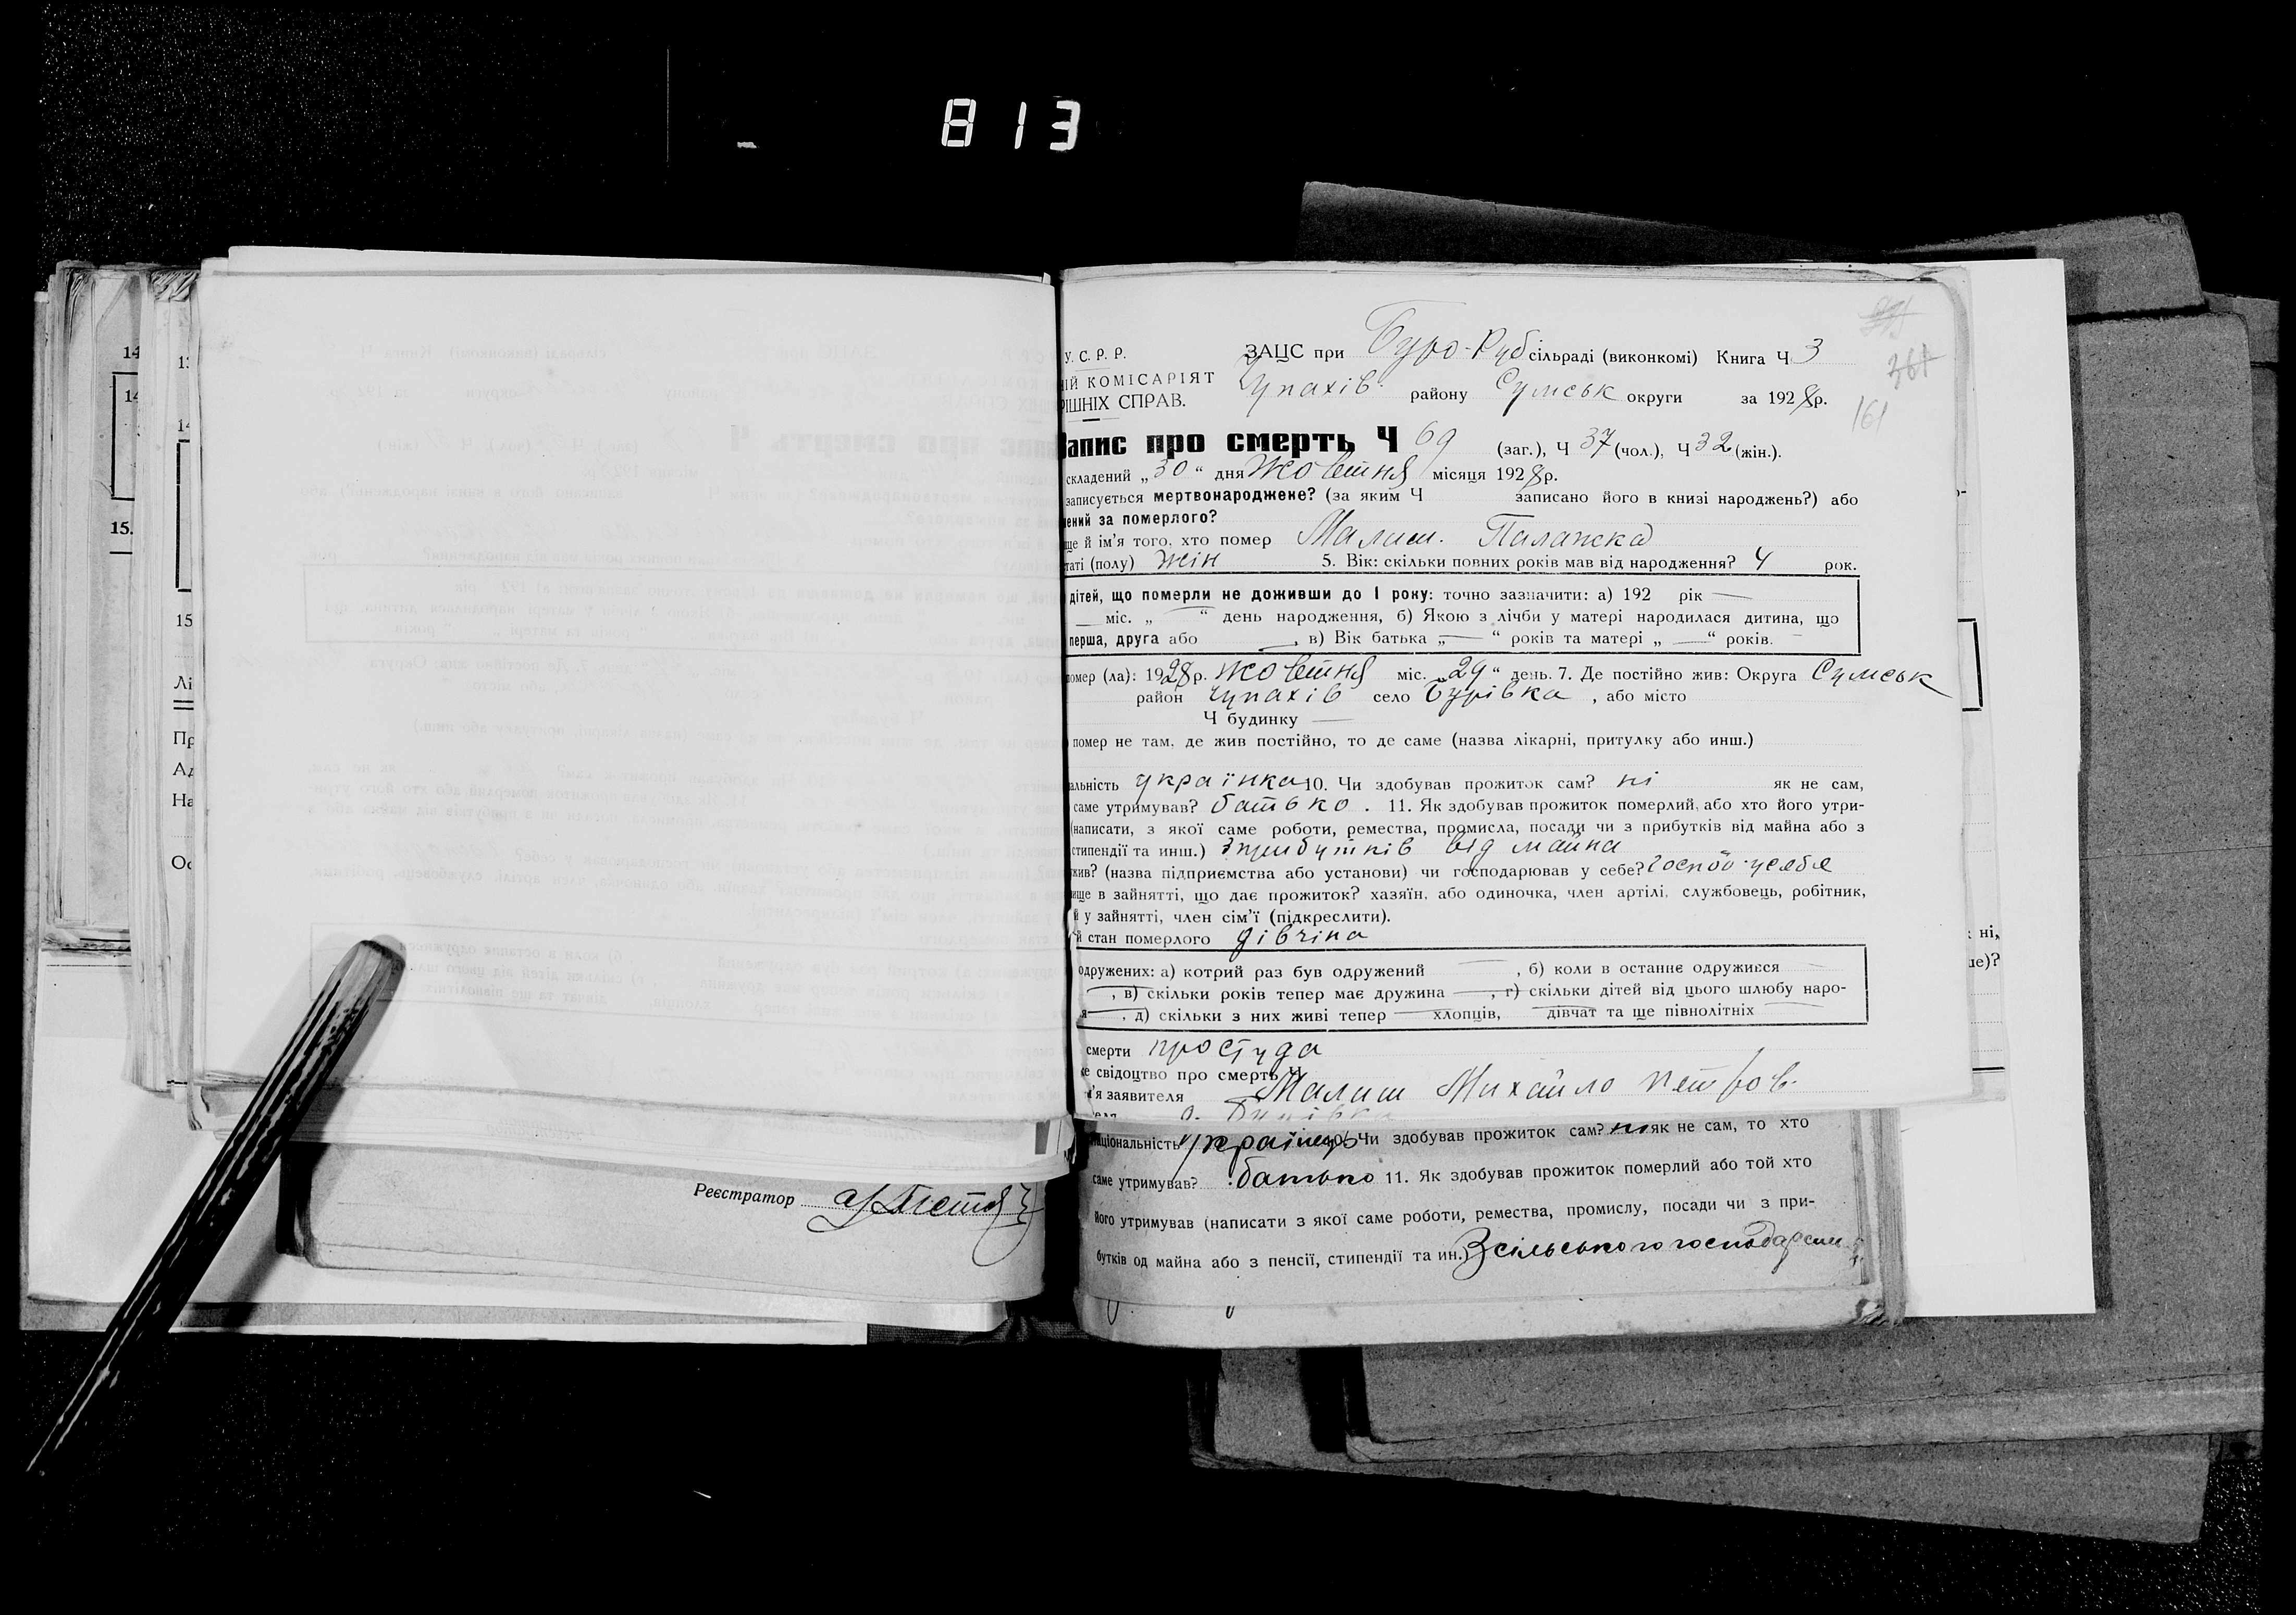 813
У. С. Р. Р.
ЗАЦС при Буро-Руб сільраді (виконкомі) Книга Ч 3
ІЙ КОМІСАРІЯТ
Чупахів району Сумськ округи за 1928 р.
РІШНІХ СПРАВ.
361
161
Запис про смерть Ч 69 (заг.), Ч 37 (чол.), Ч 32 (жін.).
складений „30“ дня Жовтня місяця 1928 р.
записується мертвонароджене? (за яким Ч записано його в книзі народжень?) або
ений за померлого?
ще й ім'я того, хто помер Малиш. Палажка
таті (полу) жін 5. Вік: скільки повних років мав від народження? 4 рок.
дітей, що померли не доживши до 1 року: точно зазначити: а) 192 рік —
— міс. „ — “ день народження, б) Якою з лічби у матері народилася дитина, що
перша, друга або , в) Вік батька „—“ років та матері „—“ років. —
помер (ла): 1928 р. жовтня міс. „29“ день. 7. Де постійно жив: Округа Сумськ
район Чупахів село Бурівка , або місто
Ч будинку —
помер не там, де жив постійно, то де саме (назва лікарні, притулку або инш.)
альність українка 10. Чи здобував прожиток сам? ні як не сам,
саме утримував? батько . 11. Як здобував прожиток померлий, або хто його утри-
(написати, з якої саме роботи, ремества, промисла, посади чи з прибутків від майна або з
стипендії та инш.) з прибутків від майна
жив? (назва підприємства або установи) чи господарював у себе? господ у себе
ище в зайнятті, що дає прожиток? хазяїн, або одиночка, член артілі, службовець, робітник,
й у зайнятті, член сім'ї (підкреслити).
й стан померлого дівчина
одружених: а) котрий раз був одружений — , б) коли в останнє одружився —
— , в) скільки років тепер має дружина — , г) скільки дітей від цього шлюбу наро-
я — , д) скільки з них живі тепер — хлопців, — дівчат та ще півнолітніх —
смерти простуда
е свідоцтво про смерть Ч
м'я заявителя Малиш Михайло Петров.
с. Бурівка
Національність українець 10. Чи здобував прожиток сам? ні як не сам, то хто
саме утримував? батько 11. Як здобував прожиток померлий або той хто
його утримував (написати з якої саме роботи, ремества, промислу, посади чи з при-
бутків од майна або з пенсії, стипендії та ин.) З сільського господарства
Реєстратор
14
14
15.
13
14
15
Лі
Пр
Ад
На
Ос
ні,
ще)?